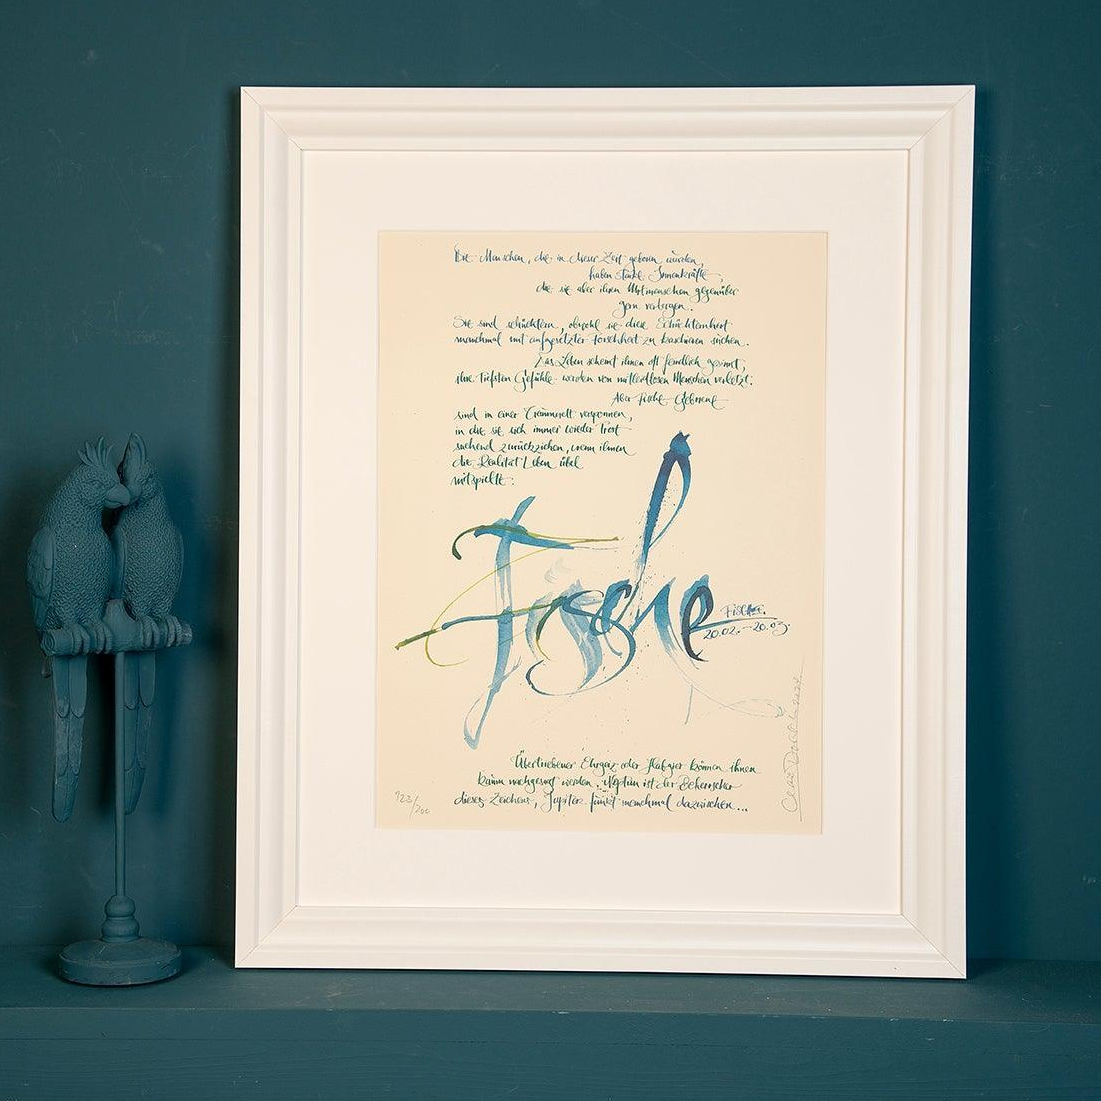 Die Menschen, die in dieser Zeit geboren wurden,
haben starke Innenkräfte,
die sie aber ihren Mitmenschen gegenüber
gern verbergen.
Sie sind schüchtern, obwohl sie diese Schüchternheit
manchmal mit aufgesetzter Forschheit zu kaschieren suchen.
Das Leben scheint ihnen oft feindlich gesinnt,
ihre tiefsten Gefühle werden von mitleidlosen Menschen verletzt.
Aber Fische Geborene
sind in einer Traumwelt versponnen,
in die sie sich immer wieder Trost
suchend zurückziehen, wenn ihnen
die Realität Leben übel
mitspielte.
Fische
Fische.
20.02.-20.03.
Übertriebener Ehrgeiz oder Habgier können ihnen
kaum nachgesagt werden. Neptun ist der Beherrscher
dieses Zeichens, Jupiter funkt manchmal dazwischen...